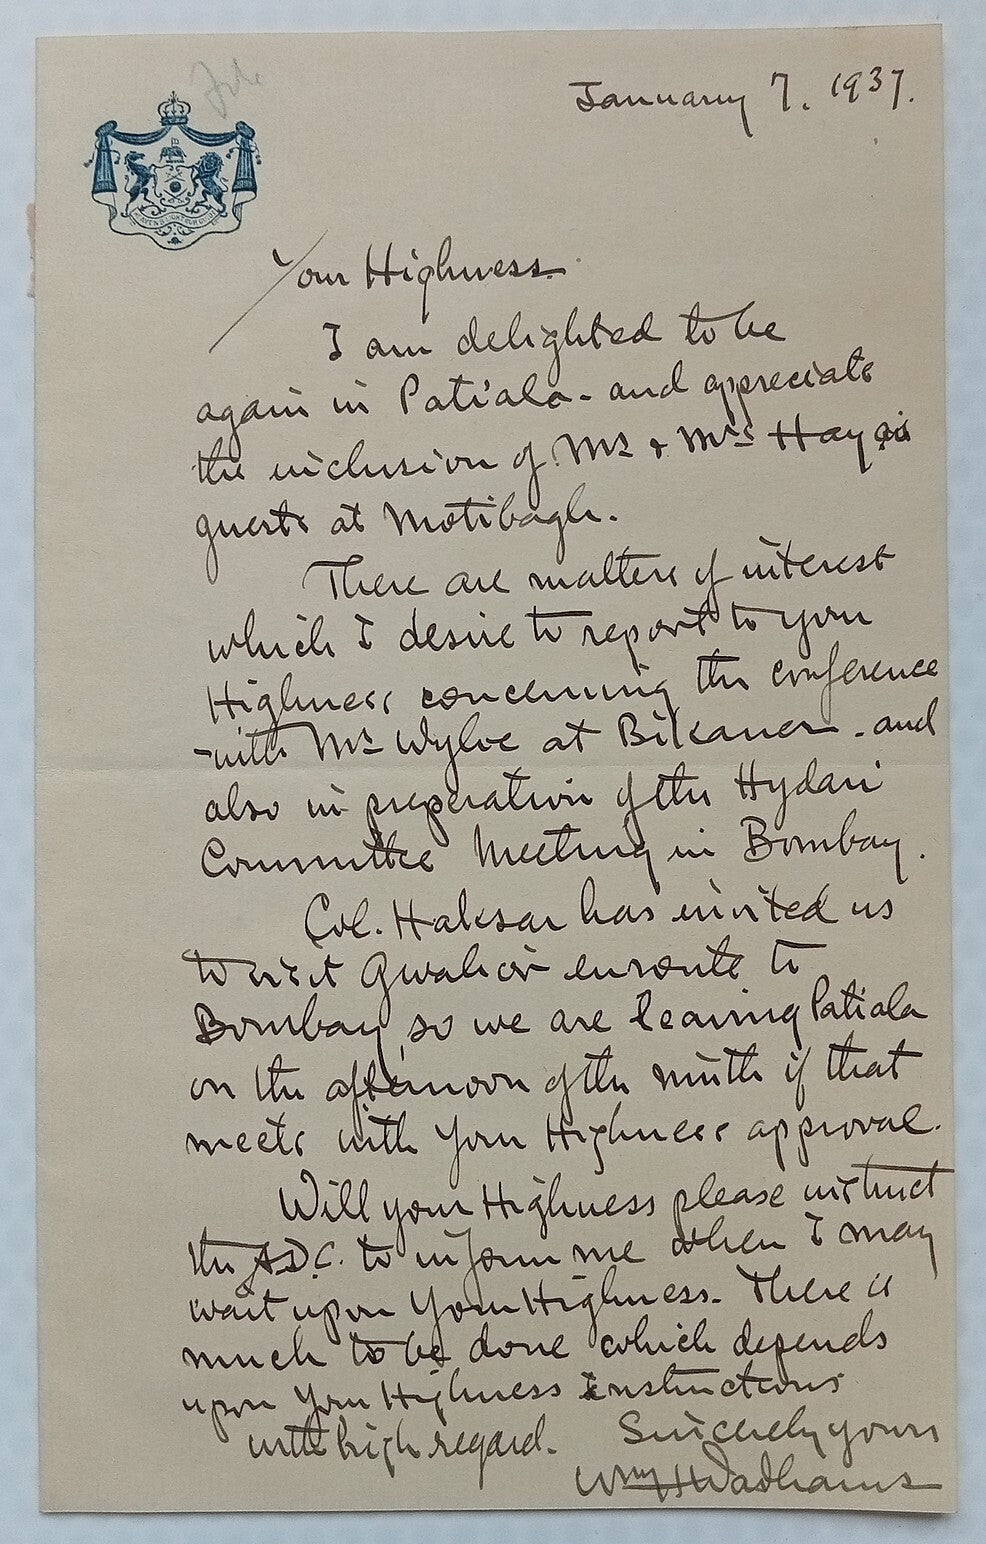 January 7. 1937.
Your Highness.
I am delighted to be
again in Patiala - and appreciate
the inclusion of Mr & Mrs Hay as
guests at Motibagh.
There are matters of interest
which I desire to report to your
Highness concerning the conference
with Mr Wylie at Bikaner - and
also in preperation of the Hydari
Committee Meeting in Bombay.
Col. Haksar has invited us
to visit Gwalior enroute to
Bombay, so we are leaving Patiala
on the afternoon of the ninth if that
meets with Your Highness approval.
Will your Highness please instruct
the A.D.C. to inform me when I may
wait upon Your Highness. There is
much to be done which depends
upon Your Highness instructions
with high regard. Sincerely yours
Wm H Wadhams